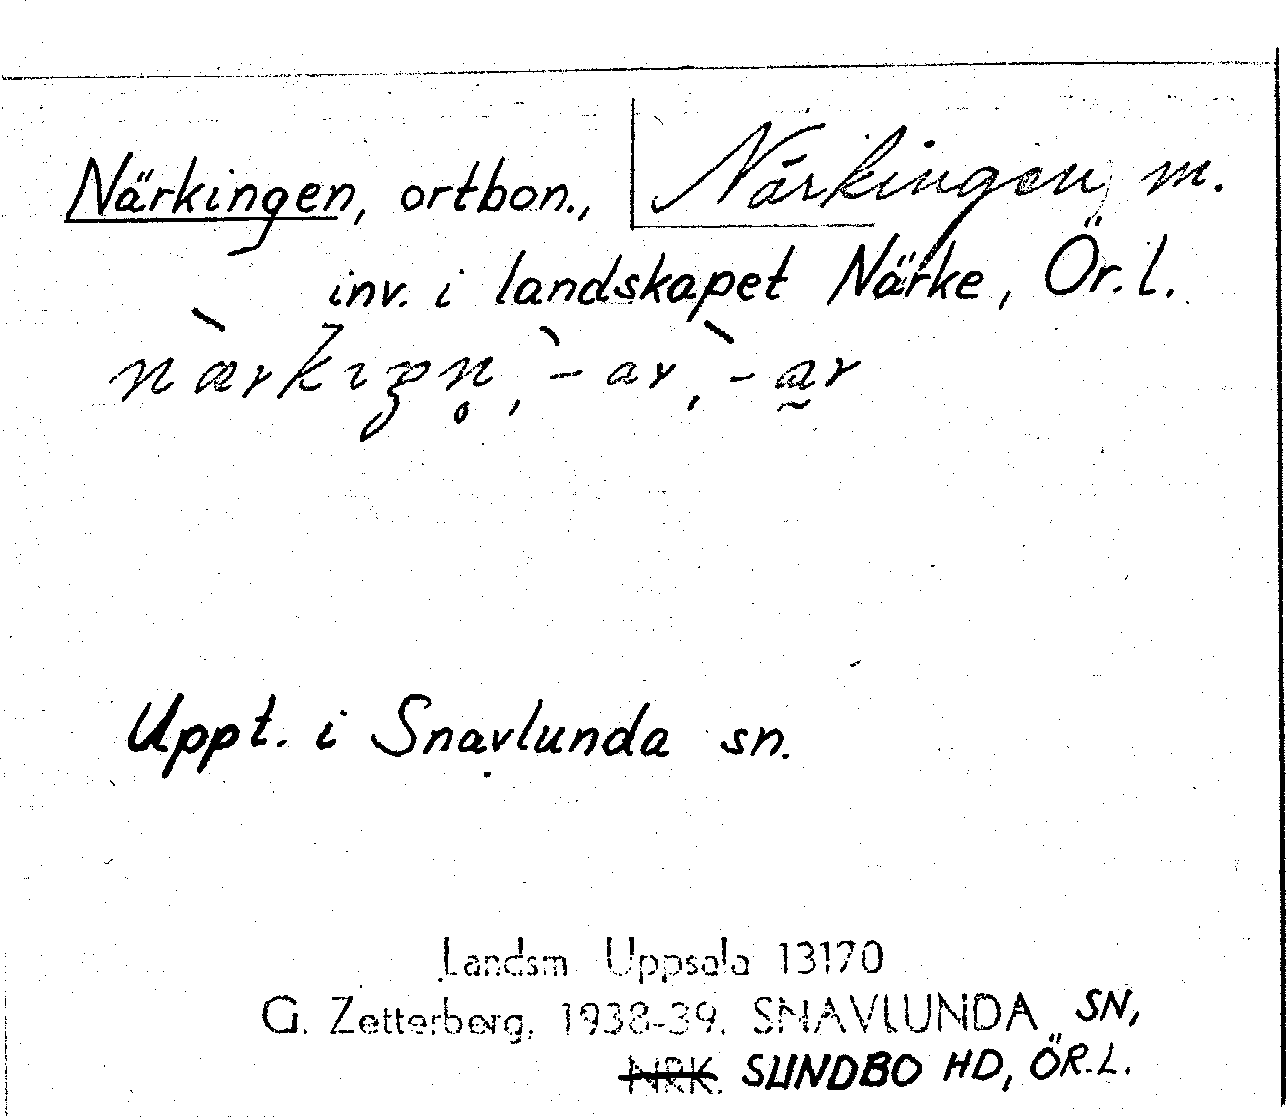 Närkingen, ortbon., Närkingen m.
inv. i landskapet Närke, Ör.l.
nærkıŋn̥, -ar, -a̰r
Uppt. i Snavlunda sn.
Landsm Uppsala 13170
G. Zetterberg, 1938-39. SNAVLUNDA SN,
NRK. SUNDBO HD, ÖR.L.